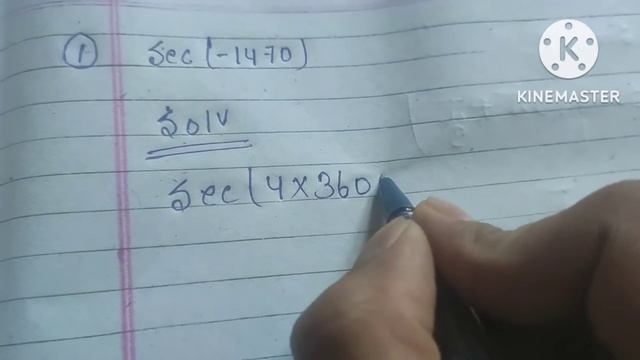 ① sec (-1470)
K
KINEMASTER
Solv
sec (4×360